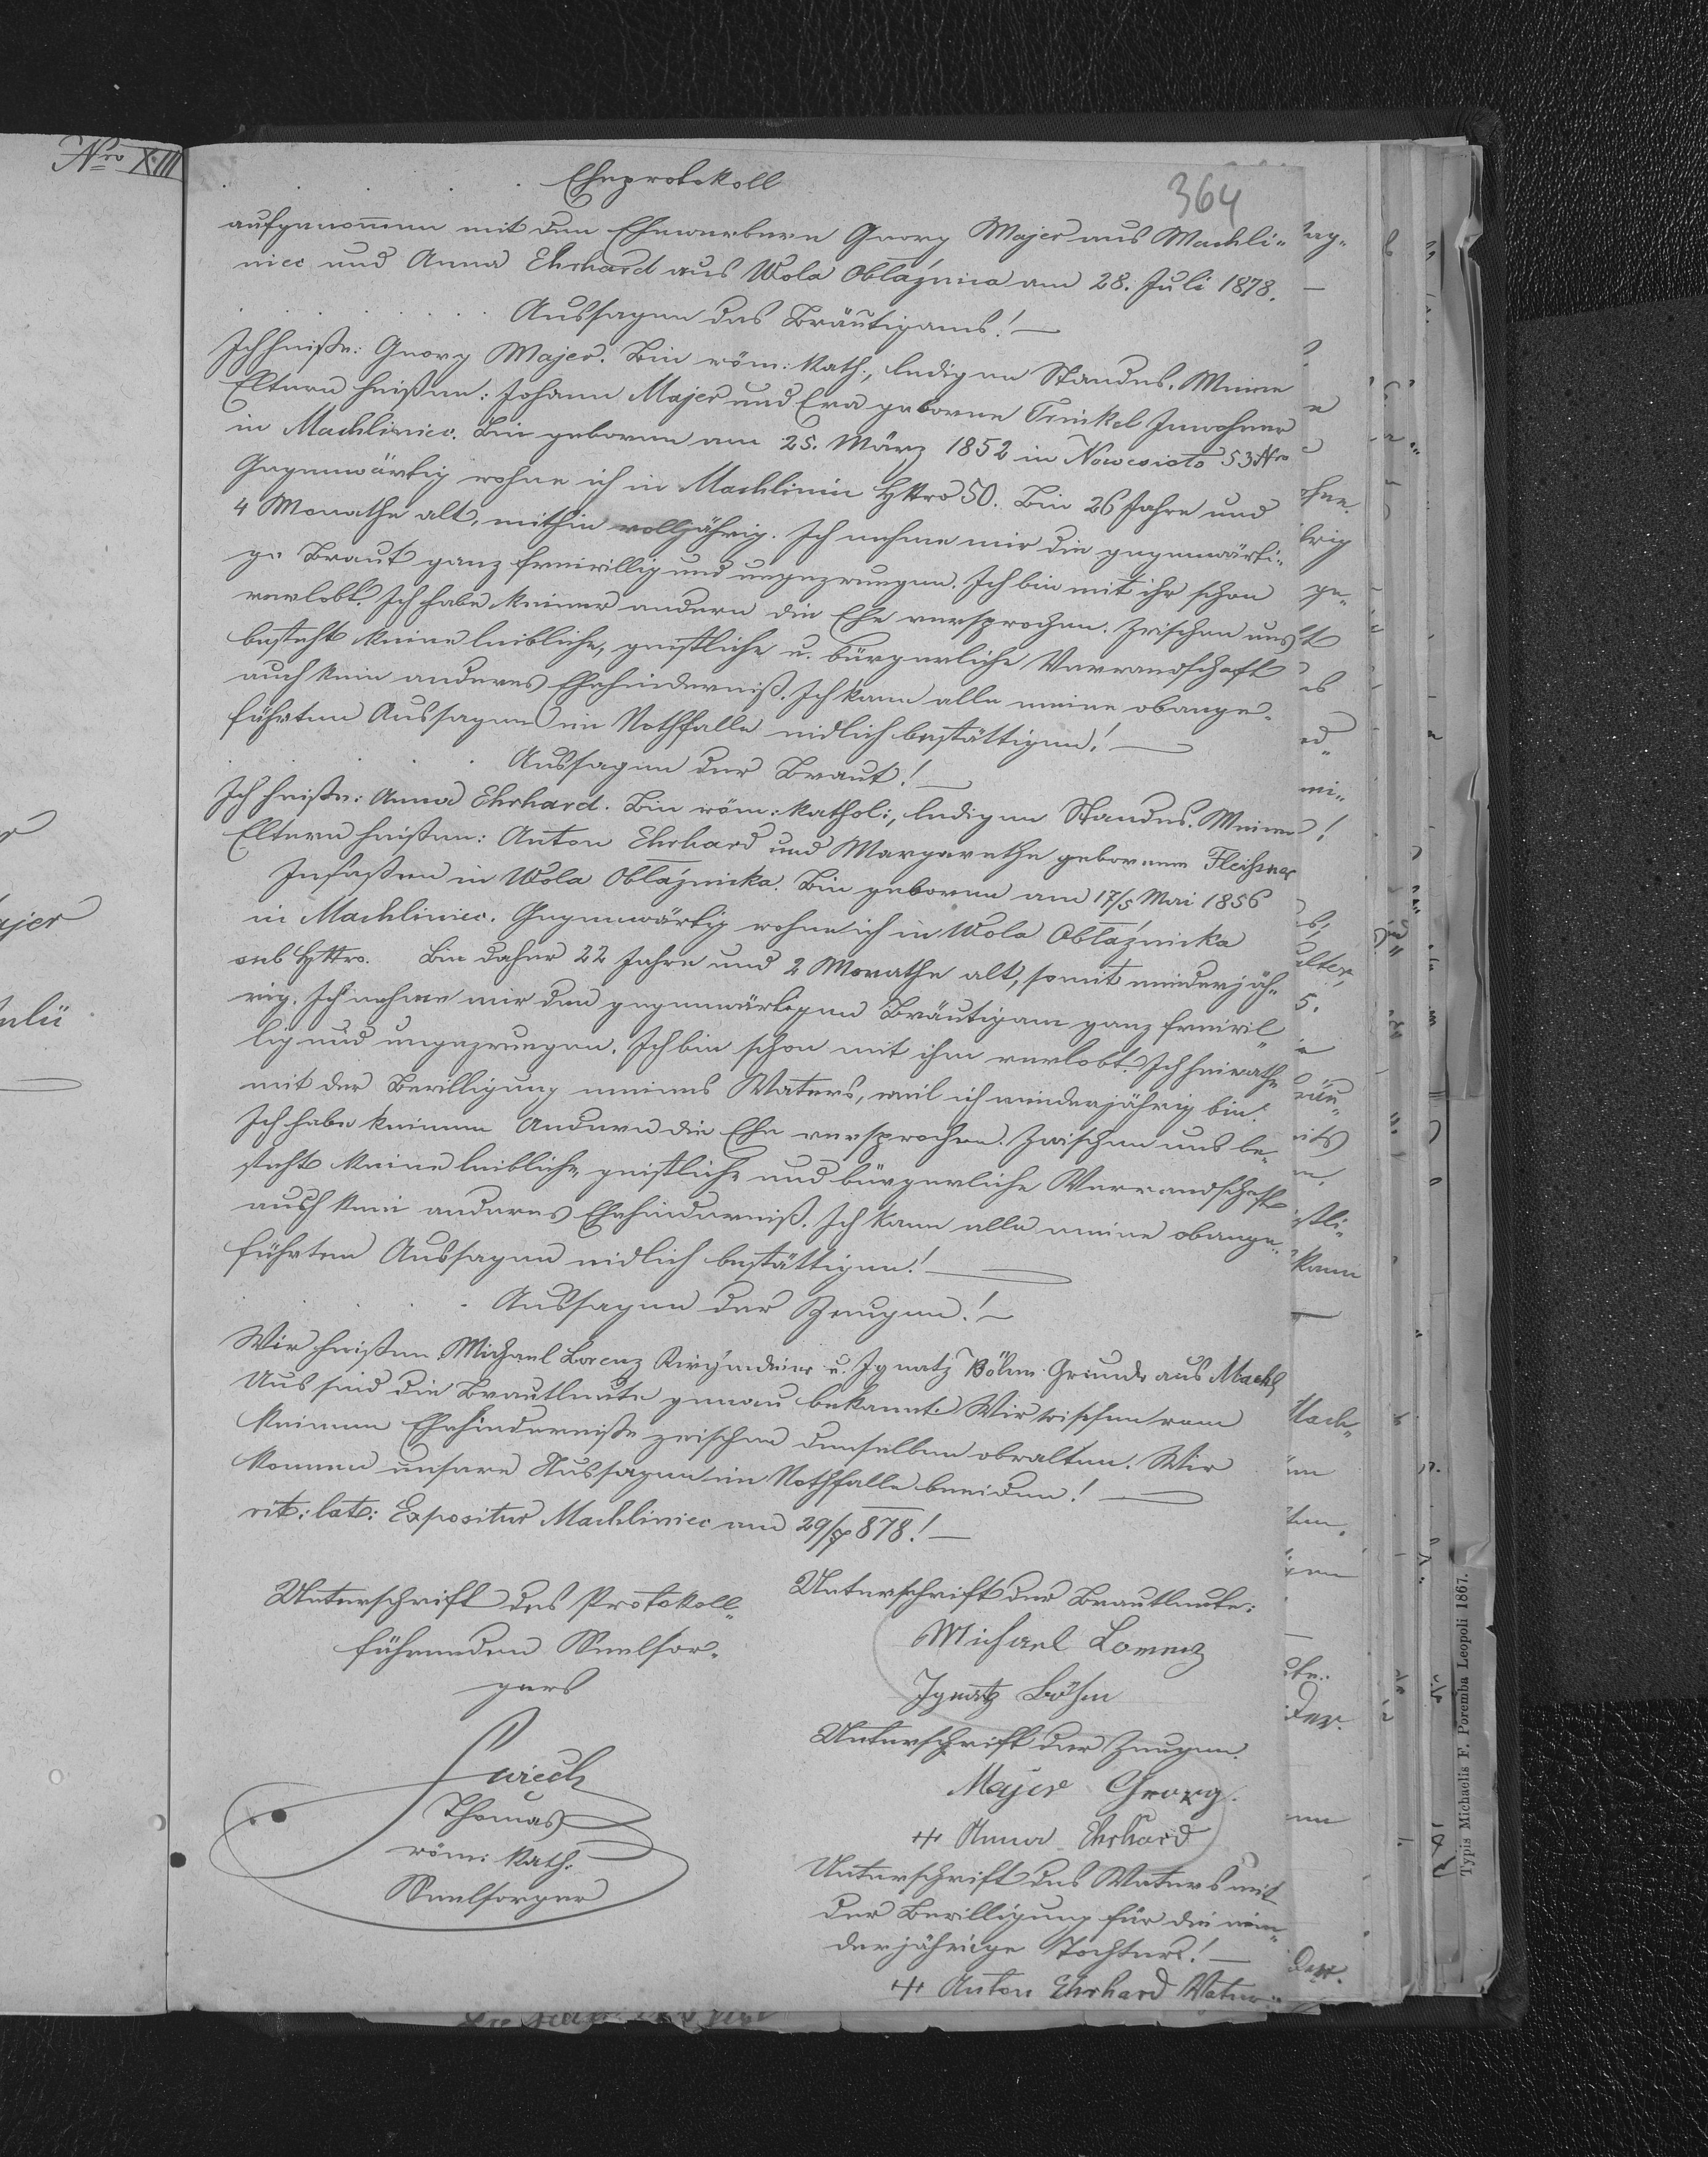 Nro XIII
364
Eheprotokoll
aufgenom̅en mit den Ehewerbern Georg Majer aus Machli-
niec und Anna Ehrhard aus Wola Oblaźnica am 28. Juli 1878.
Aussagen des Bräutigams!
Ich heiße: Georg Majer. Bin röm: kath:, ledigen Standes. Meine
Eltern heißen: Johann Majer und Eva geborne Trinkel Inwohner
in Machliniec. Bin geboren am 25. März 1852 in Nowesioło 53 Nro
Gegenwärtig wohne ich in Machliniec HNro 50. Bin 26 Jahre und
4 Monathe alt, mithin volljährig. Ich nehme mir die gegenwärti-
ge Braut ganz freiwillig und ungezwungen. Ich bin mit ihr schon
verlobt. Ich habe keiner andern die Ehe versprochen. Zwischen uns
besteht keine leibliche, geistliche u. bürgerliche Verwandschaft
auch kein anderes Ehehinderniß. Ich kann alle meine obange-
führten Aussagen im Nothfalle eidlich bestättigen!
Aussagen der Braut!
Ich heiße: Anna Ehrhard. Bin röm: kathol:, ledigen Standes. Meine
Eltern heißen: Anton Ehrhard und Margarethe geborene Fleißner
Insaßen in Wola Oblaźnicka. Bin geboren am 17/5 Mai 1856
in Machliniec. Gegenwärtig wohne ich in Wola Oblaźnicka
sub HNro. Bin daher 22 Jahre und 2 Monathe alt, somit minderjäh-
rig. Ich nehme mir den gegenwärtigen Bräutigam ganz freiwil-
lig und ungezwungen. Ich bin schon mit ihm verlobt. Ich heirathe
mit der Bewilligung meines Vaters, weil ich minderjährig bin.
Ich habe keinem Andern die Ehe versprochen. Zwischen uns be-
steht keine leibliche, geistliche und bürgerliche Verwandschaft
auch kein anderes Ehehinderniß. Ich kann alle meine obange-
führten Aussagen eidlich bestättigen!
Aussagen der Zeugen!
Wir heißen Michael Lorenz u. Ignatz Böhm Grundw aus Machl
Uns sind die Brautleute genau bekannt. Wir wissen von
keinem Ehehinderniße zwischen denselben obwalten. Wir
können unsere Aussagen im Nothfalle beeiden!
rit: lat: Expositur Machliniec am 29/7 878!
Unterschrift des Protokoll-
führenden Seelsor-
gers
Swiech
Thomas
röm: kath:
Seelsorger
Unterschrift der Brautleute:
Michael Lorenz
Ignatz Böhm
Unterschrift der Zeugen.
Majer Georg.
+++ Anna Ehrhard
Unterschrift des Vaters mit
der Bewilligung für die min-
derjährige Tochter!
+++ Anton Ehrhard Vater
Typis Michaelis F. Poremba Leopoli 1867.